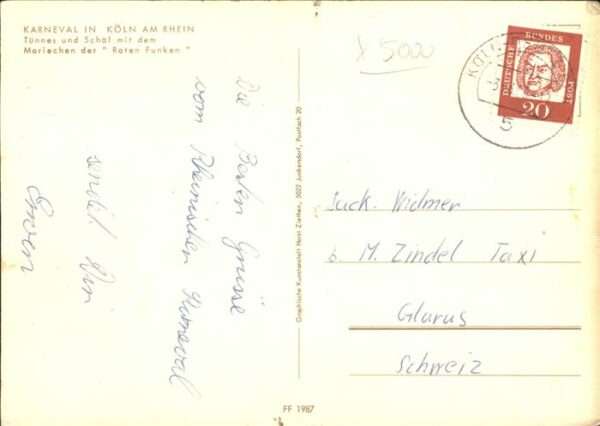 KARNEVAL IN KÖLN AM RHEIN
Tünnes und Schäl mit dem
Mariechen der "Roten Funken"
Die Besten Grüsse
vom Rheinischen Karneval
sendet Dir
Erwin
Graphische Kunstanstalt Horst Ziethen, 5022 Junkersdorf, Postfach 20
FF 1987
5000
KÖLN
5
DEUTSCHE BUNDES POST
20
Widmer
b. M. Zindel Taxi
Glarus
Schweiz